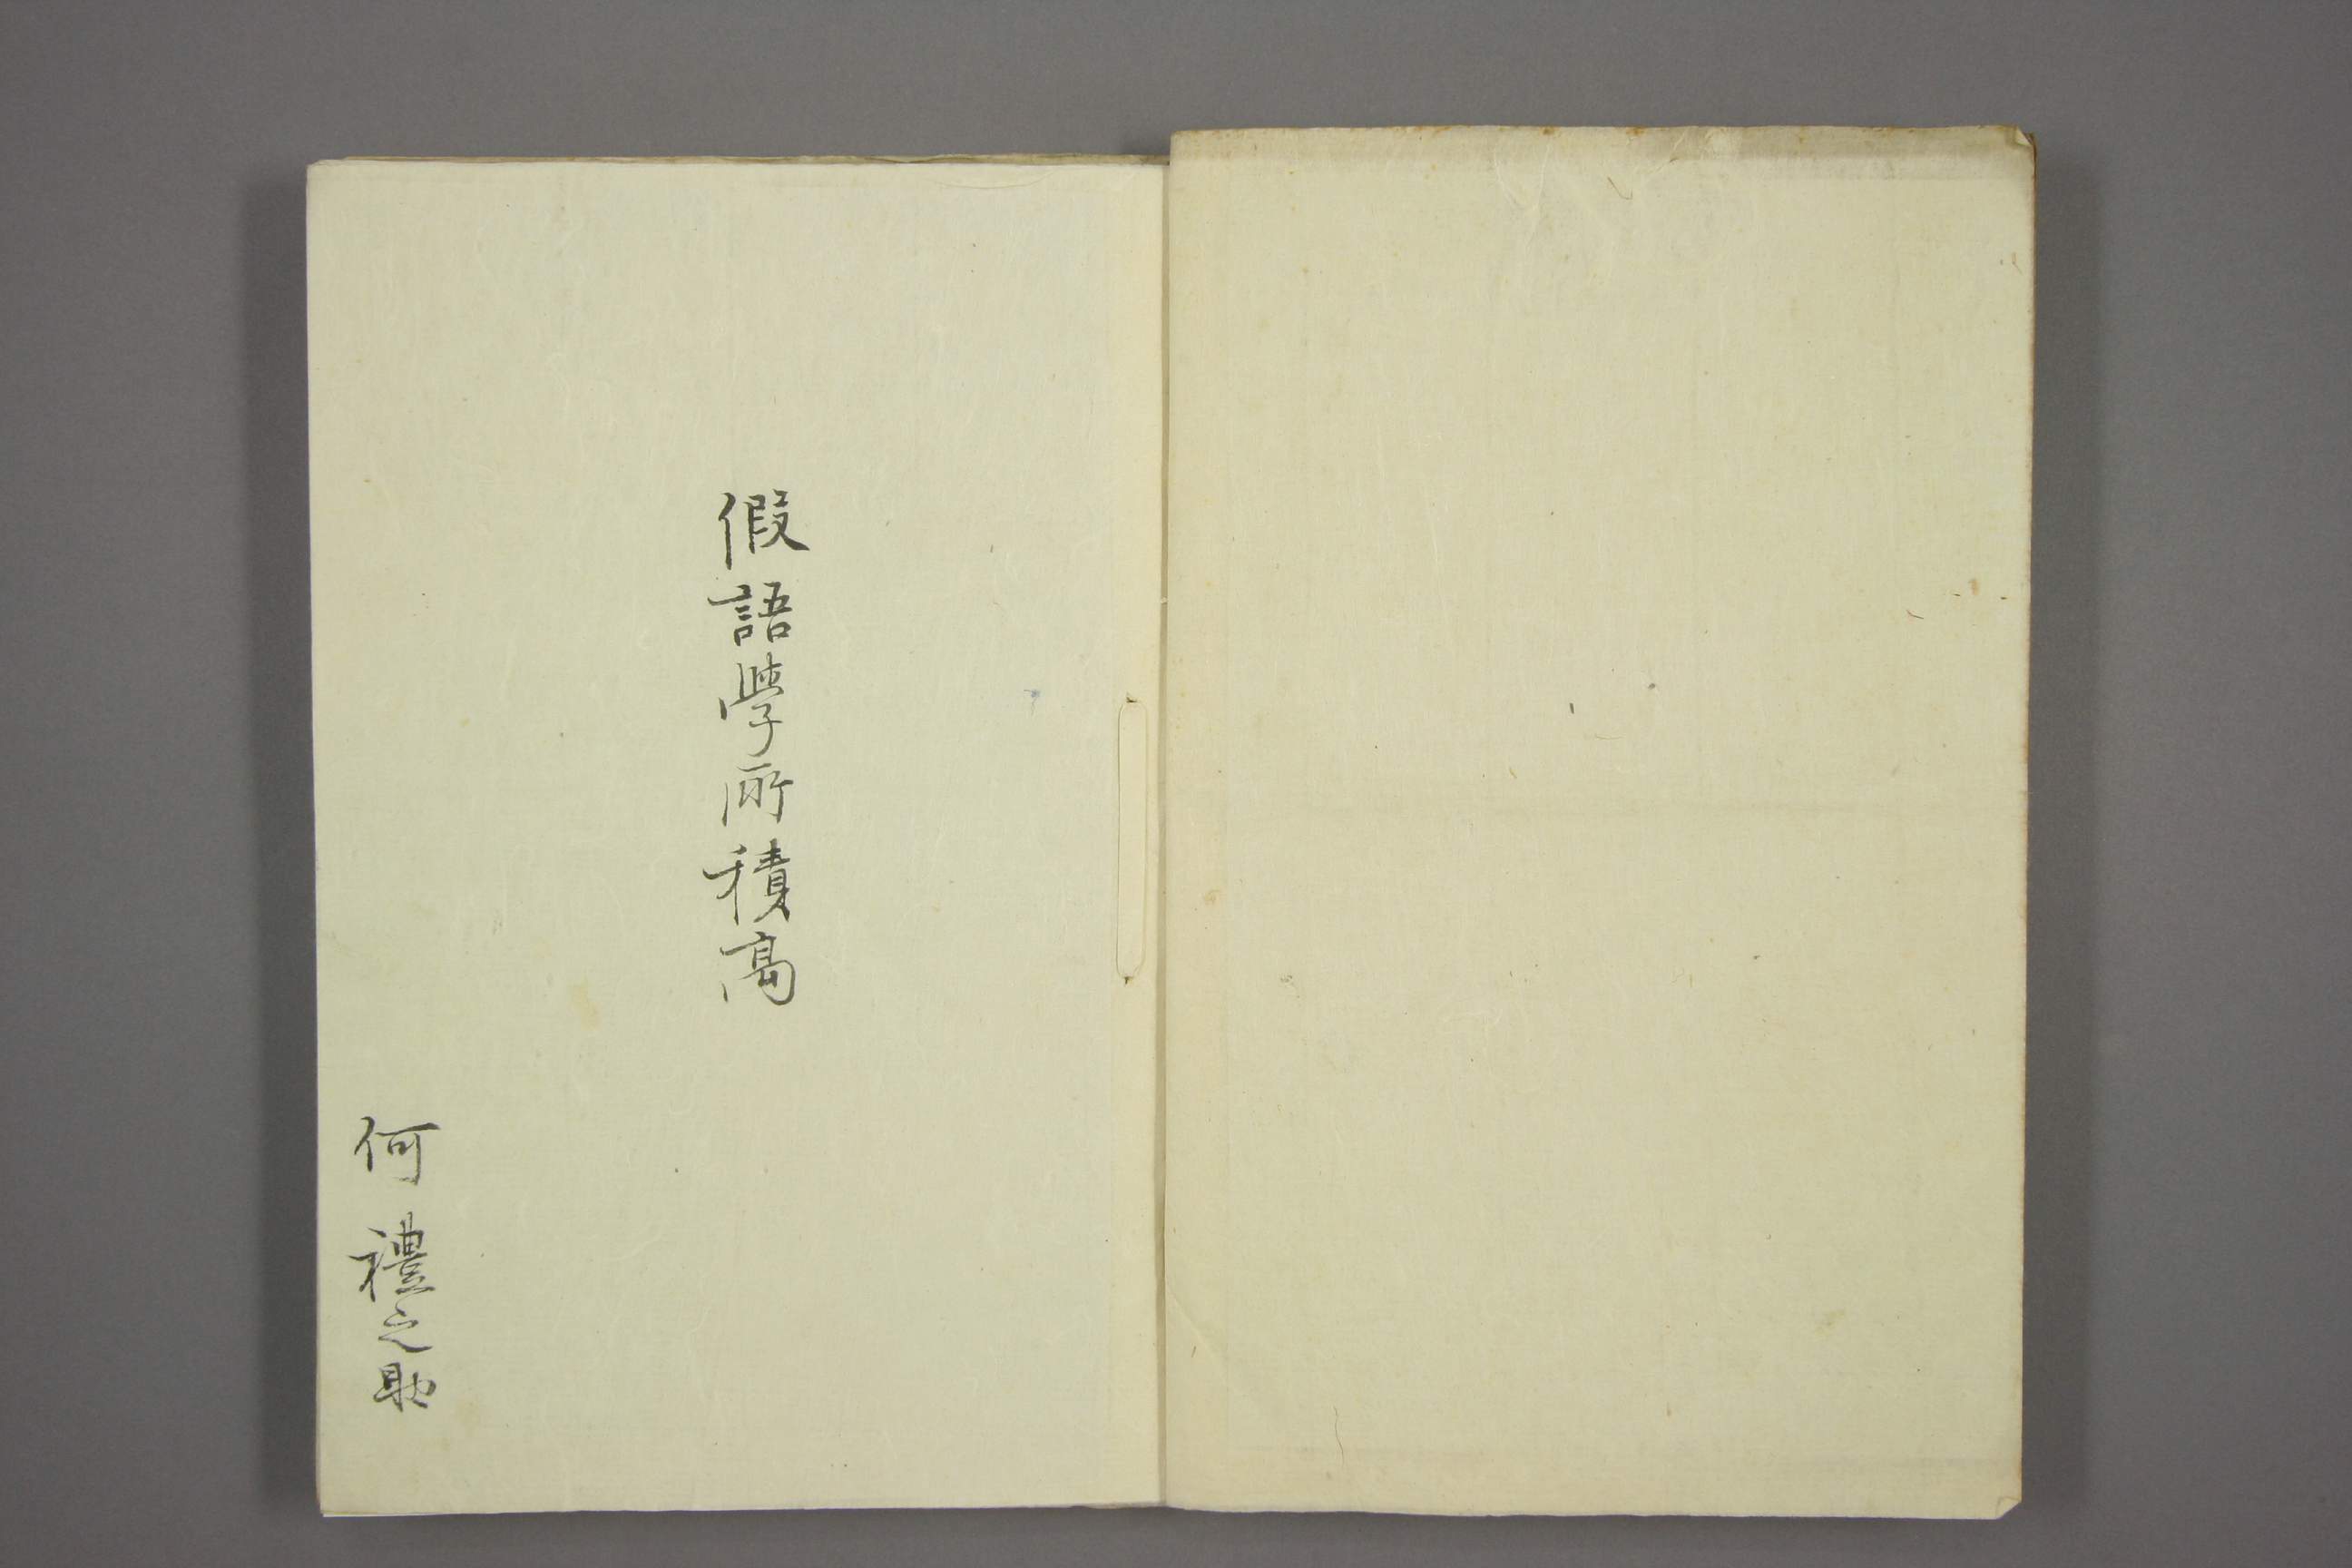 假語學所積高
何禮之助